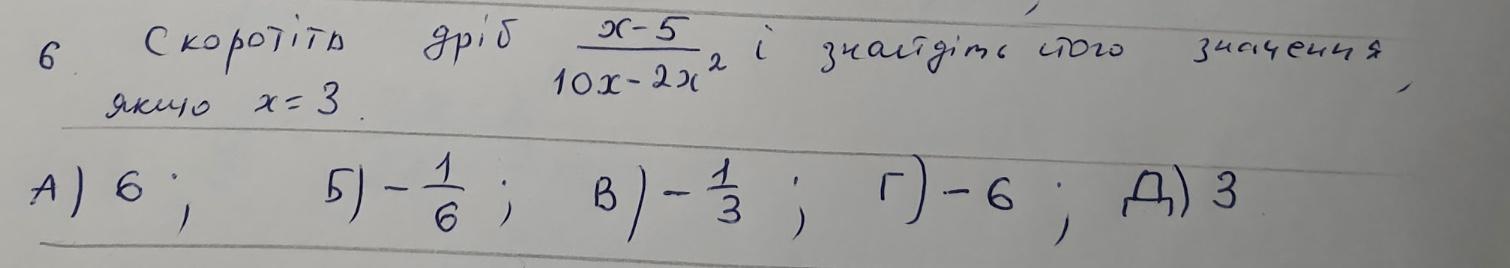 6 Скоротіть дріб \frac{x-5}{10x-2x^2} і знайдіть його значення,
якщо x=3.
А) 6; Б) -\frac{1}{6}; В) -\frac{1}{3}; Г) -6; Д) 3